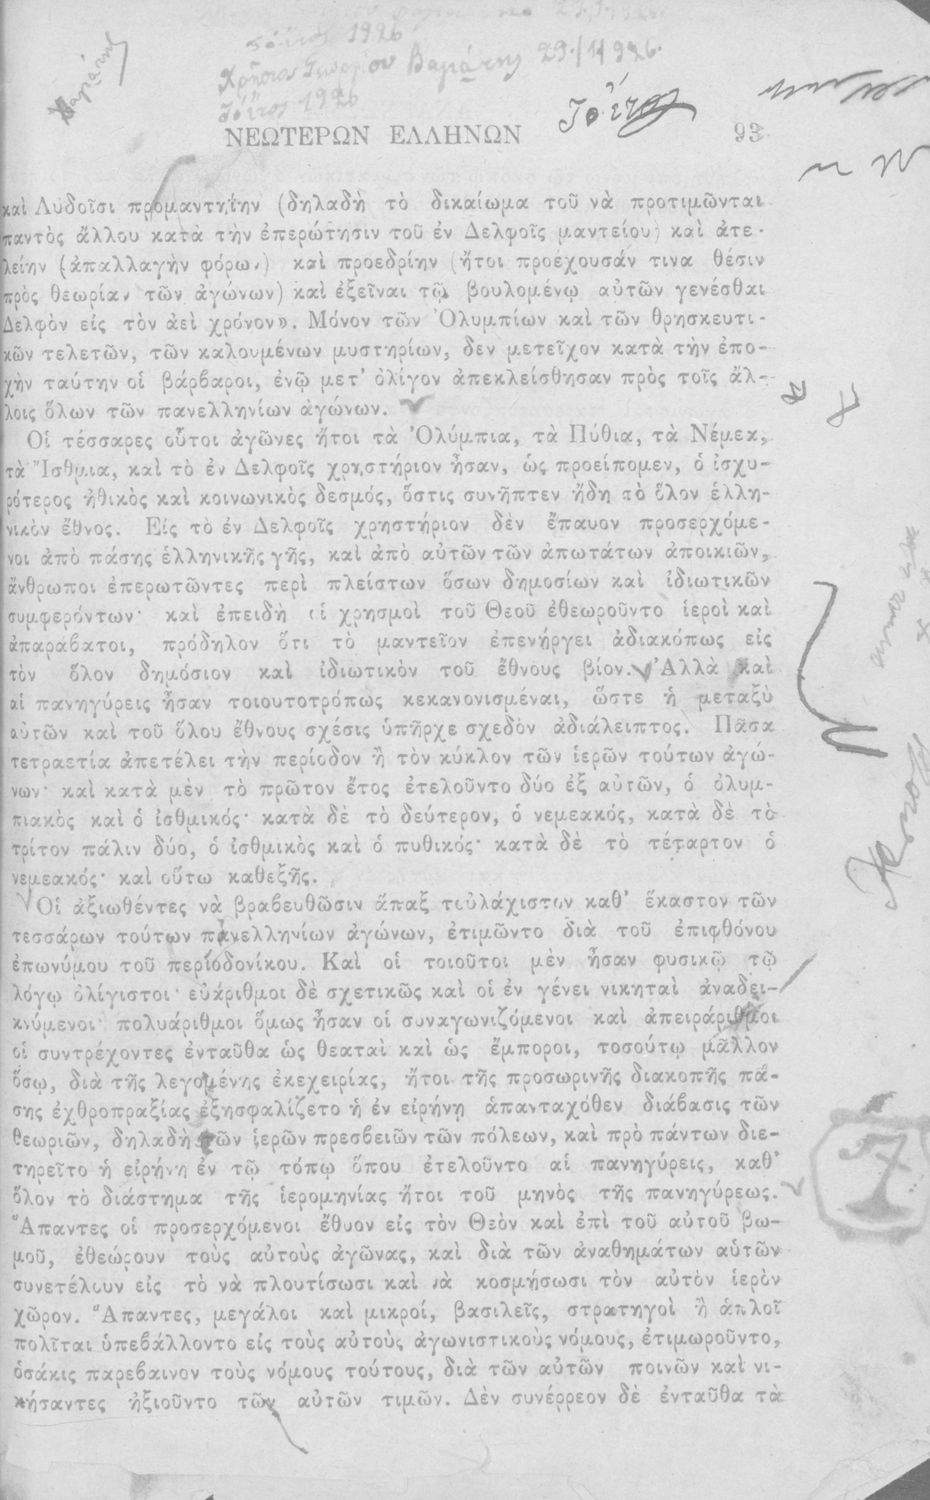 1926
Χρῆστος Γεωργίου Βαμιάτης 29/1/926
1926
ΝΕΩΤΕΡΩΝ ΕΛΛΗΝΩΝ 93
καὶ Λυδοῖσι προμαντηίην (δηλαδὴ τὸ δικαίωμα τοῦ νὰ προτιμῶνται
παντὸς ἄλλου κατὰ τὴν ἐπερώτησιν τοῦ ἐν Δελφοῖς μαντείου) καὶ ἀτε-
λείην (ἀπαλλαγὴν φόρων) καὶ προεδρίην (ἤτοι προέχουσάν τινα θέσιν
πρὸς θεωρίαν τῶν ἀγώνων) καὶ ἐξεῖναι τῷ βουλομένῳ αὐτῶν γενέσθαι
Δελφὸν εἰς τὸν ἀεὶ χρόνον». Μόνον τῶν Ὀλυμπίων καὶ τῶν θρησκευτι-
κῶν τελετῶν, τῶν καλουμένων μυστηρίων, δεν μετεῖχον κατὰ τὴν ἐπο-
χὴν ταύτην οἱ βάρβαροι, ἐνῷ μετ' ὀλίγον ἀπεκλείσθησαν πρὸς τοῖς ἄλ-
λοις ὅλων τῶν πανελληνίων ἀγώνων.
Οἱ τέσσαρες οὗτοι ἀγῶνες ἤτοι τὰ Ὀλύμπια, τὰ Πύθια, τὰ Νέμεα,
τὰ Ἴσθμια, καὶ τὸ ἐν Δελφοῖς χρηστήριον ἦσαν, ὡς προείπομεν, ὁ ἰσχυ-
ρότερος ἠθικὸς καὶ κοινωνικὸς δεσμός, ὅστις συνῆπτεν ἤδη τὸ ὅλον ἑλλη-
νικὸν ἔθνος. Εἰς τὸ ἐν Δελφοῖς χρηστήριον δὲν ἔπαυον προσερχόμε-
νοι ἀπὸ πάσης ἑλληνικῆς γῆς, καὶ ἀπὸ αὐτῶν τῶν ἀπωτάτων ἀποικιῶν,
ἄνθρωποι ἐπερωτῶντες περὶ πλείστων ὅσων δημοσίων καὶ ἰδιωτικῶν
συμφερόντων· καὶ ἐπειδὴ οἱ χρησμοὶ τοῦ Θεοῦ ἐθεωροῦντο ἱεροὶ καὶ
ἀπαράβατοι, πρόδηλον ὅτι τὸ μαντεῖον ἐπενήργει ἀδιακόπως εἰς
τὸν ὅλον δημόσιον καὶ ἰδιωτικὸν τοῦ ἔθνους βίον. Ἀλλὰ καὶ
αἱ πανηγύρεις ἦσαν τοιουτοτρόπως κεκανονισμέναι, ὥστε ἡ μεταξὺ
αὐτῶν καὶ τοῦ ὅλου ἔθνους σχέσις ὑπῆρχε σχεδὸν ἀδιάλειπτος. Πᾶσα
τετραετία ἀπετέλει τὴν περίοδον ἢ τὸν κύκλον τῶν ἱερῶν τούτων ἀγώ-
νων· καὶ κατὰ μὲν τὸ πρῶτον ἔτος ἐτελοῦντο δύο ἐξ αὐτῶν, ὁ ὀλυμ-
πιακὸς καὶ ὁ ἰσθμικός· κατὰ δὲ τὸ δεύτερον, ὁ νεμεακός, κατὰ δὲ τὸ
τρίτον πάλιν δύο, ὁ ἰσθμικὸς καὶ ὁ πυθικός· κατὰ δὲ τὸ τέταρτον ὁ
νεμεακός· καὶ οὕτω καθεξῆς.
Οἱ ἀξιωθέντες νὰ βραβευθῶσιν ἅπαξ τοὐλάχιστον καθ' ἕκαστον τῶν
τεσσάρων τούτων πανελληνίων ἀγώνων, ἐτιμῶντο διὰ τοῦ ἐπιφθόνου
ἐπωνύμου τοῦ περιοδονίκου. Καὶ οἱ τοιοῦτοι μὲν ἦσαν φυσικῷ τῷ
λόγῳ ὀλίγιστοι· εὐάριθμοι δὲ σχετικῶς καὶ οἱ ἐν γένει νικηταὶ ἀναδει-
κνύμενοι· πολυάριθμοι ὅμως ἦσαν οἱ συναγωνιζόμενοι καὶ ἀπειράριθμοι
οἱ συντρέχοντες ἐνταῦθα ὡς θεαταὶ καὶ ὡς ἔμποροι, τοσούτῳ μᾶλλον
ὅσῳ, διὰ τῆς λεγομένης ἐκεχειρίας, ἤτοι τῆς προσωρινῆς διακοπῆς πά-
σης ἐχθροπραξίας ἐξησφαλίζετο ἡ ἐν εἰρήνῃ ἁπανταχόθεν διάβασις τῶν
θεωριῶν, δηλαδὴ τῶν ἱερῶν πρεσβειῶν τῶν πόλεων, καὶ πρὸ πάντων διε-
τηρεῖτο ἡ εἰρήνη ἐν τῷ τόπῳ ὅπου ἐτελοῦντο αἱ πανηγύρεις, καθ'
ὅλον τὸ διάστημα τῆς ἱερομηνίας ἤτοι τοῦ μηνὸς τῆς πανηγύρεως.
Ἅπαντες οἱ προσερχόμενοι ἔθυον εἰς τὸν Θεὸν καὶ ἐπὶ τοῦ αὐτοῦ βω-
μοῦ, ἐθεώρουν τοὺς αὐτοὺς ἀγῶνας, καὶ διὰ τῶν ἀναθημάτων αὑτῶν
συνετέλουν εἰς τὸ νὰ πλουτίσωσι καὶ νὰ κοσμήσωσι τὸν αὐτὸν ἱερὸν
χῶρον. Ἅπαντες, μεγάλοι καὶ μικροί, βασιλεῖς, στρατηγοὶ ἢ ἁπλοῖ
πολῖται ὑπεβάλλοντο εἰς τοὺς αὐτοὺς ἀγωνιστικοὺς νόμους, ἐτιμωροῦντο,
ὁσάκις παρέβαινον τοὺς νόμους τούτους, διὰ τῶν αὐτῶν ποινῶν καὶ νι-
κήσαντες ἠξιοῦντο τῶν αὐτῶν τιμῶν. Δὲν συνέρρεον δὲ ἐνταῦθα τὰ